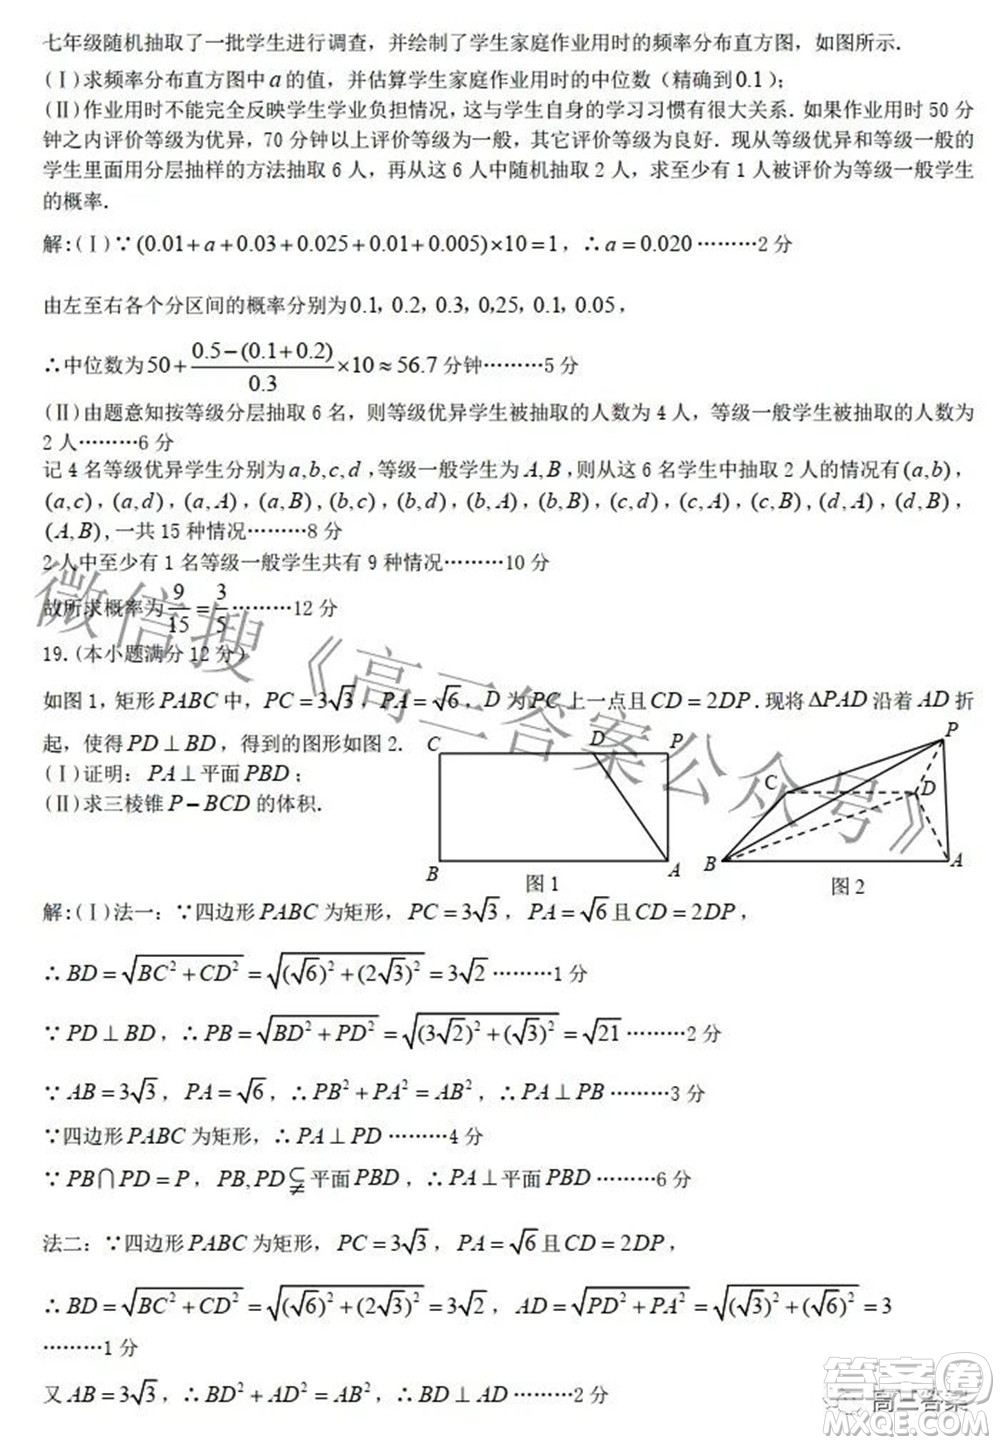 七年级随机抽取了一批学生进行调查，并绘制了学生家庭作业用时的频率分布直方图，如图所示．
(Ⅰ)求频率分布直方图中 a 的值，并估算学生家庭作业用时的中位数（精确到 0.1）；
(Ⅱ)作业用时不能完全反映学生学业负担情况，这与学生自身的学习习惯有很大关系．如果作业用时 50 分
钟之内评价等级为优异，70 分钟以上评价等级为一般，其它评价等级为良好．现从等级优异和等级一般的
学生里面用分层抽样的方法抽取 6 人，再从这 6 人中随机抽取 2 人，求至少有 1 人被评价为等级一般学生
的概率．
解：(Ⅰ)∵(0.01+a+0.03+0.025+0.01+0.005)×10=1，∴a=0.020………2 分
由左至右各个分区间的概率分别为0.1, 0.2, 0.3, 0.25, 0.1, 0.05，
∴中位数为50+\frac{0.5-(0.1+0.2)}{0.3}×10≈56.7 分钟………5 分
(Ⅱ)由题意知按等级分层抽取 6 名，则等级优异学生被抽取的人数为 4 人，等级一般学生被抽取的人数为
2 人………6 分
记 4 名等级优异学生分别为 a,b,c,d ，等级一般学生为 A,B，则从这 6 名学生中抽取 2 人的情况有 (a,b)，
(a,c)，(a,d)，(a,A)，(a,B)，(b,c)，(b,d)，(b,A)，(b,B)，(c,d)，(c,A)，(c,B)，(d,A)，(d,B)，
(A,B)，一共 15 种情况………8 分
2 人中至少有 1 名等级一般学生共有 9 种情况………10 分
故所求概率为\frac{9}{15}=\frac{3}{5}………12 分
19.(本小题满分 12 分)
如图 1，矩形 PABC 中，PC=3√3，PA=√6，D 为 PC 上一点且 CD=2DP．现将 ΔPAD 沿着 AD 折
起，使得 PD⊥BD，得到的图形如图 2．
(Ⅰ)证明：PA⊥平面 PBD；
(Ⅱ)求三棱锥 P-BCD 的体积．
C D P
B A
图 1
P
C D
B A
图 2
解：(Ⅰ)法一：∵四边形 PABC 为矩形，PC=3√3，PA=√6 且 CD=2DP，
∴BD=√(BC²+CD²)=√((√6)²+(2√3)²)=3√2………1 分
∵PD⊥BD，∴PB=√(BD²+PD²)=√((3√2)²+(√3)²)=√21………2 分
∵AB=3√3，PA=√6，∴PB²+PA²=AB²，∴PA⊥PB………3 分
∵四边形 PABC 为矩形，∴PA⊥PD………4 分
∵PB∩PD=P，PB,PD⫋平面 PBD，∴PA⊥平面 PBD………6 分
法二：∵四边形 PABC 为矩形，PC=3√3，PA=√6 且 CD=2DP，
∴BD=√(BC²+CD²)=√((√6)²+(2√3)²)=3√2，AD=√(PD²+PA²)=√((√3)²+(√6)²)=3
………1 分
又 AB=3√3，∴BD²+AD²=AB²，∴BD⊥AD………2 分
微信搜《高三答案公众号》
高三答案
答案圈
MXQE.COM